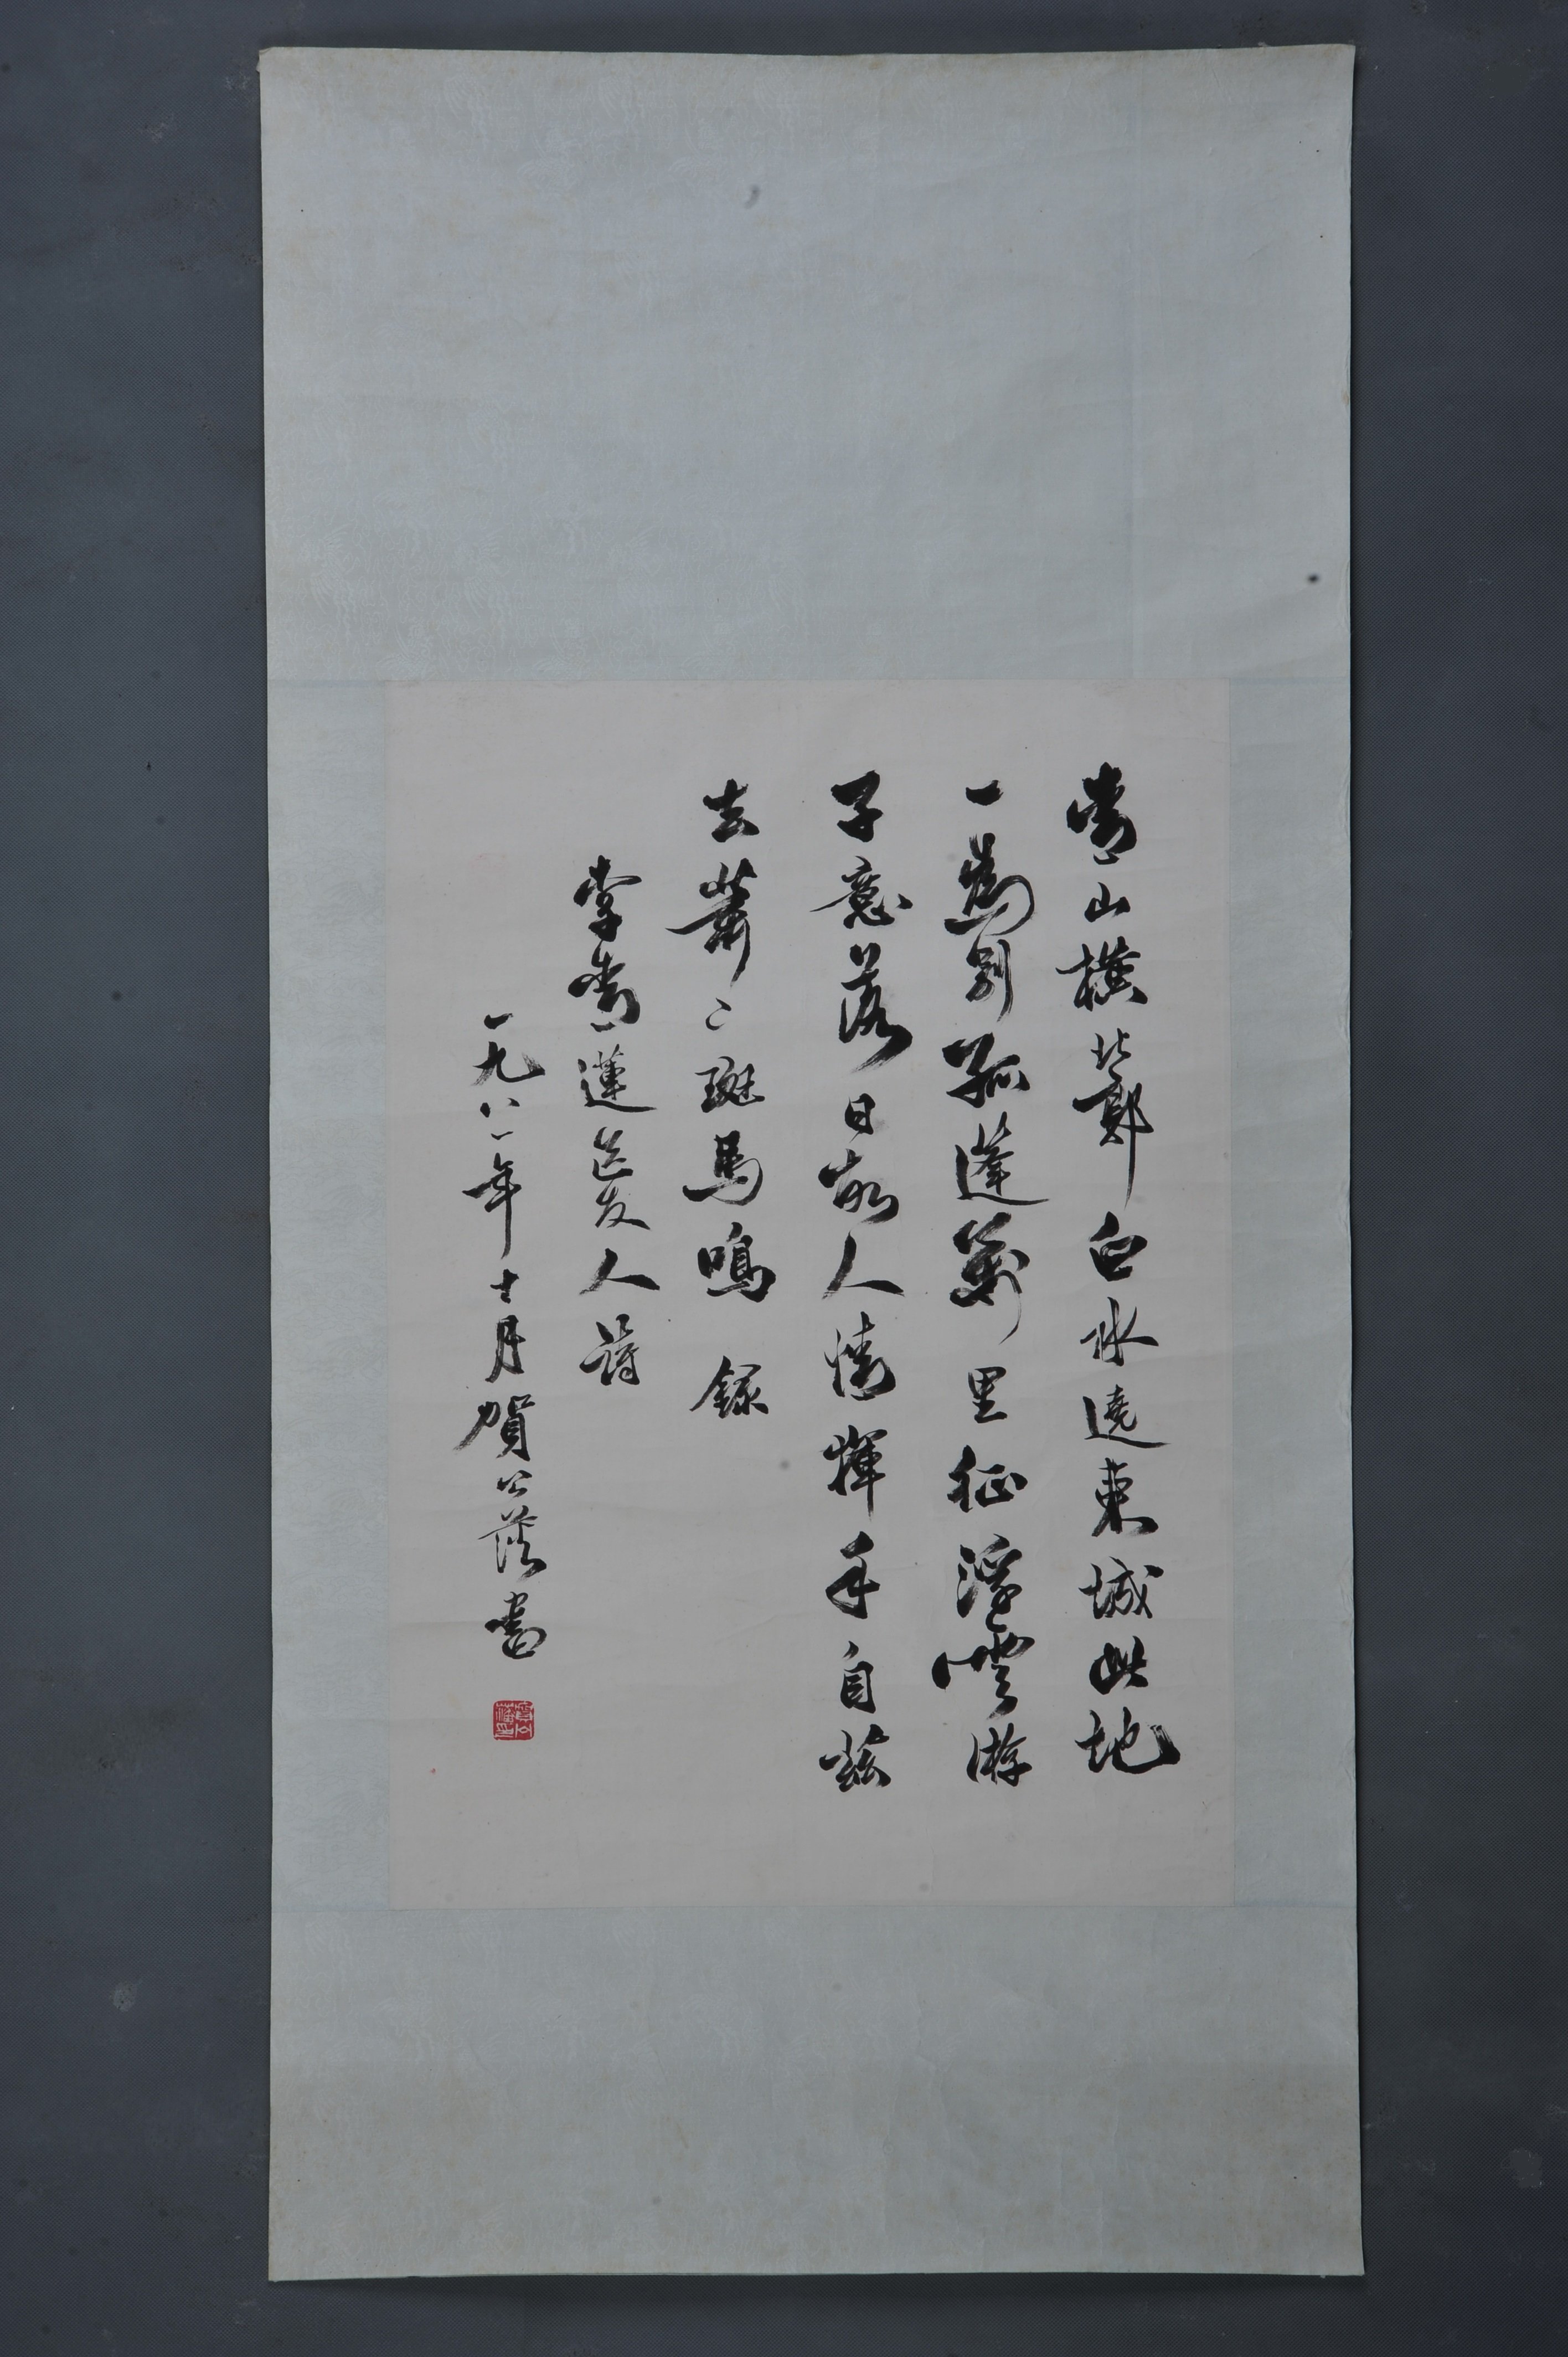 青山橫北郭白水遶東城此地
一為別孤蓬萬里征浮雲游
子意落日故人情揮手自茲
去蕭〻斑馬鳴 錄
李青蓮送友人詩
一九八一年十月賀公書